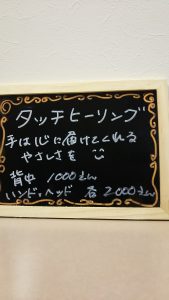 タッチヒーリング
手はじに届けてくれる
やさしさを
背中 1000えん
ハンド、ヘッド 各2000えん